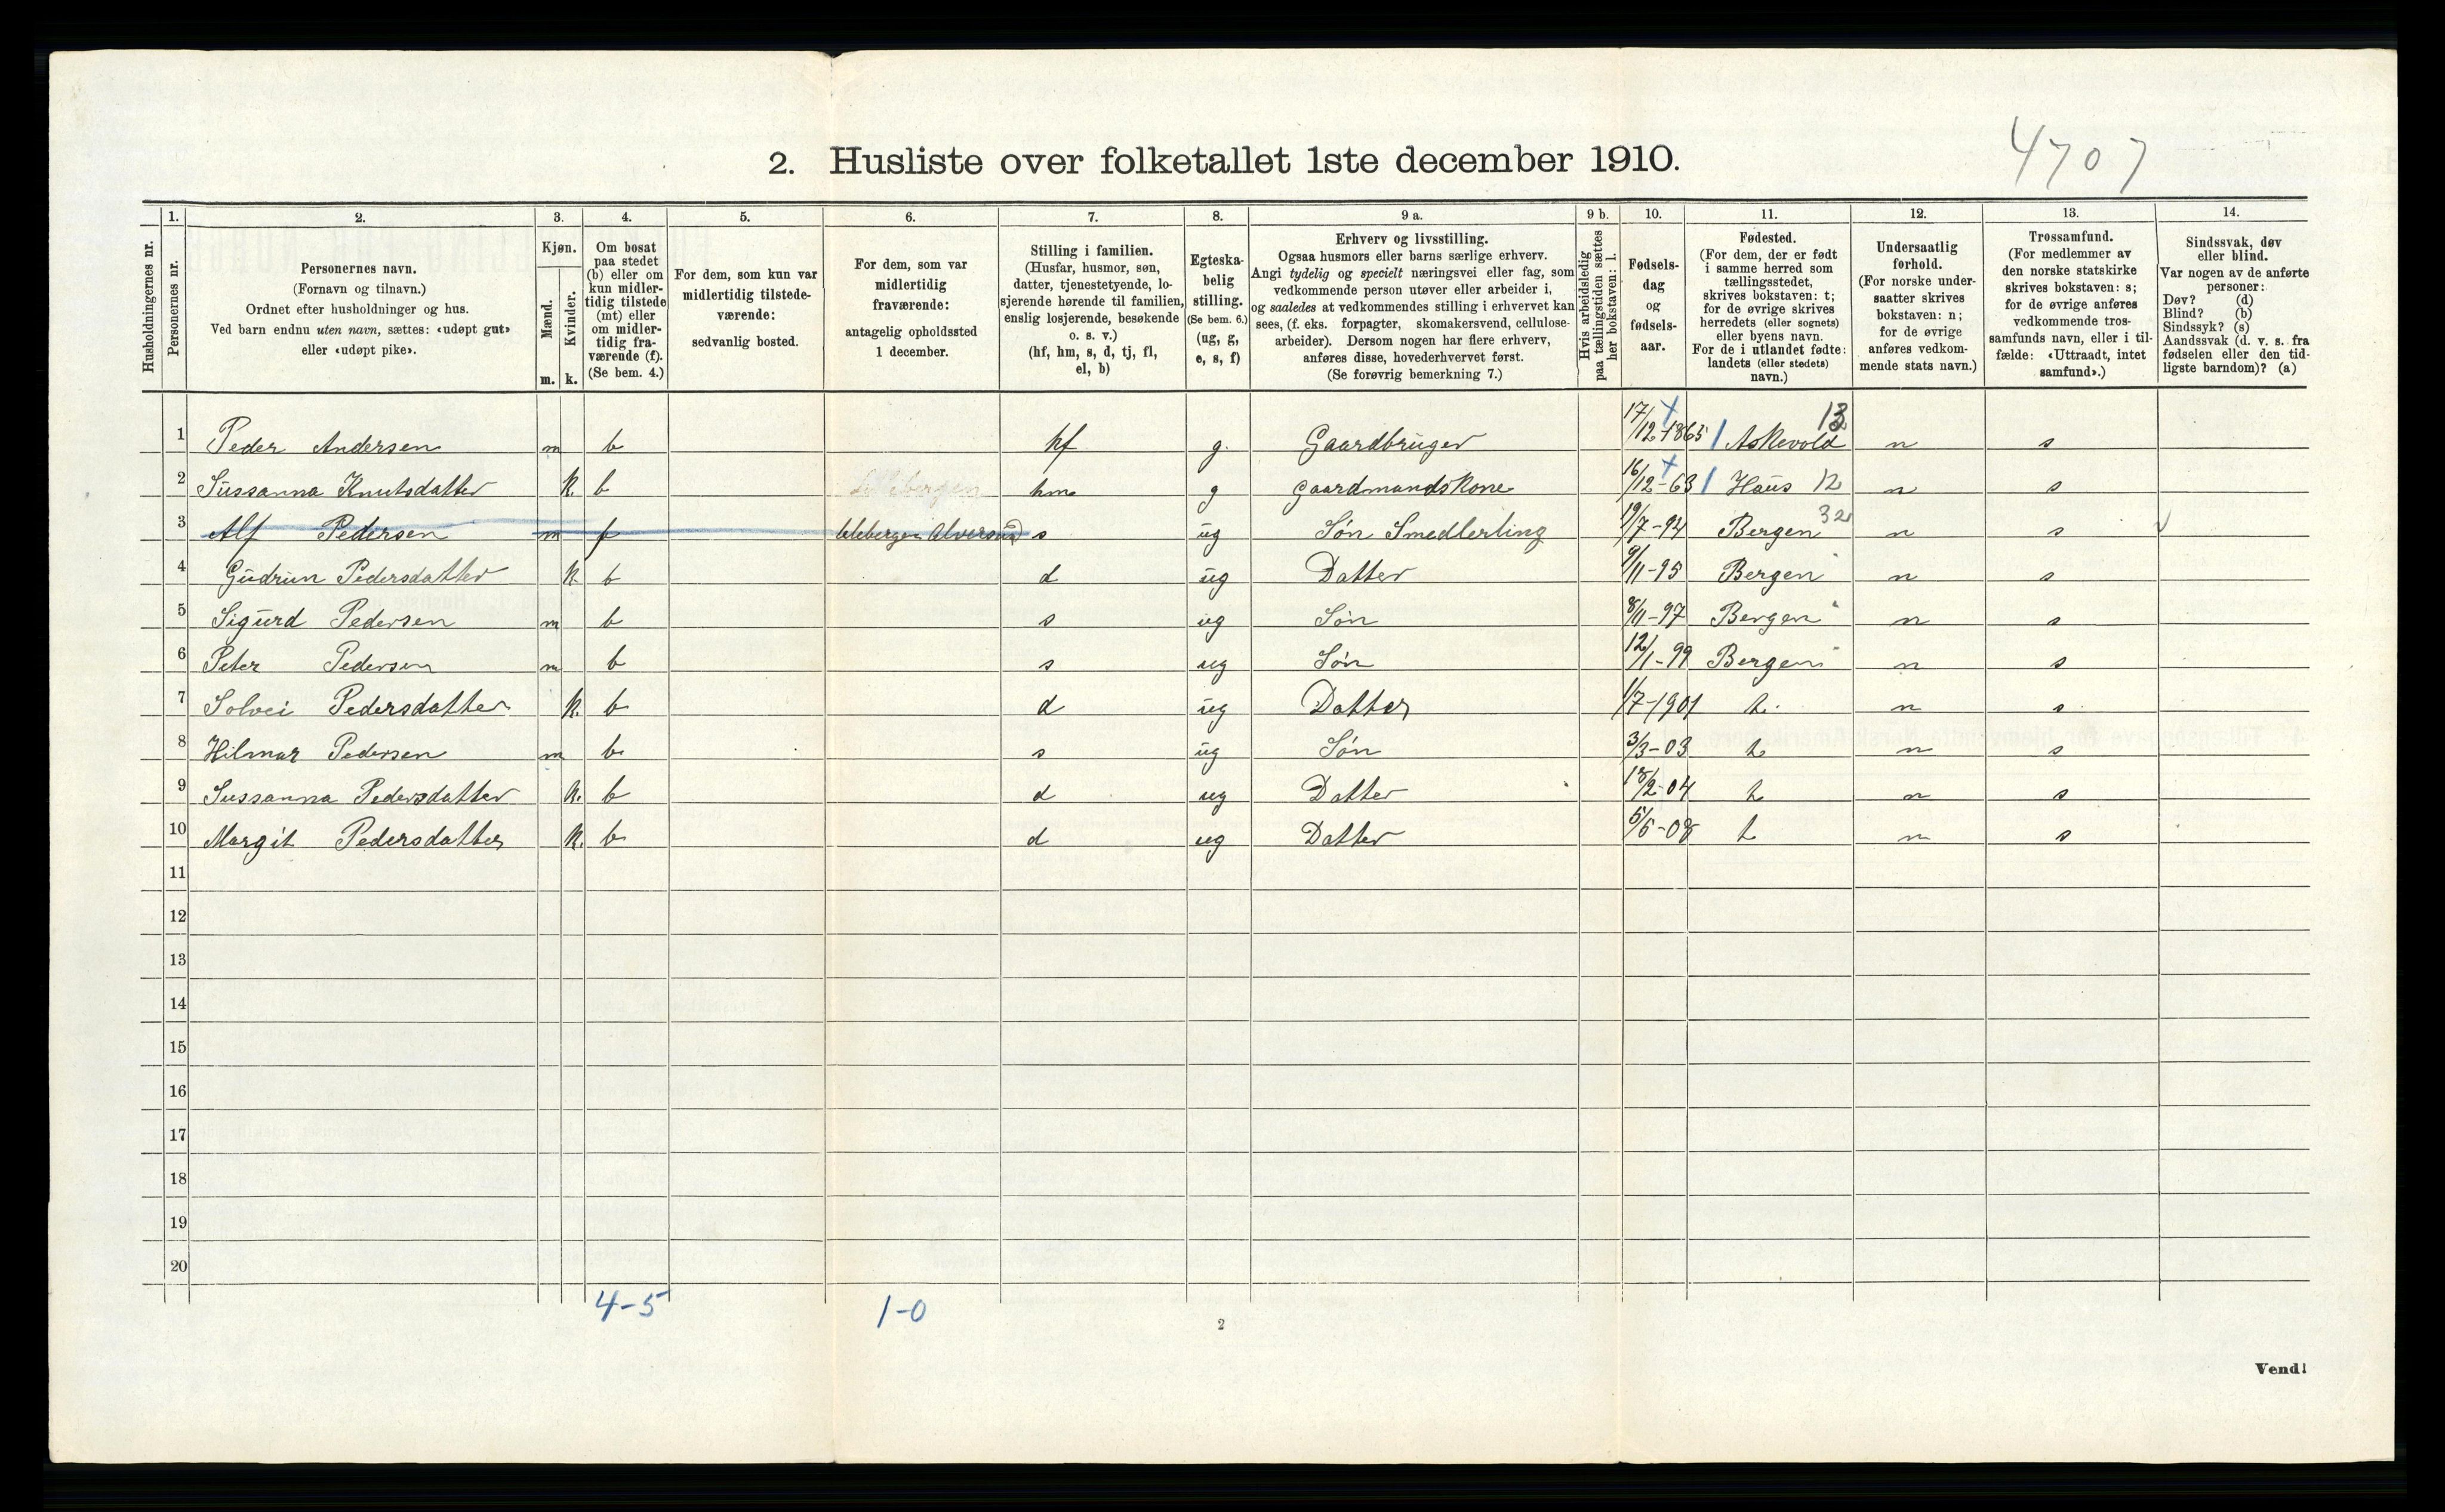 4707
2. Husliste over folketallet 1ste december 1910.
Husholdningernes nr.
1. Personernes nr.
2. Personernes navn. (Fornavn og tilnavn.) Ordnet efter husholdninger og hus. Ved barn endnu uten navn, sættes: «udøpt gut» eller «udøpt pike».
3. Kjøn. Mænd. m. Kvinder. k.
4. Om bosat paa stedet (b) eller om kun midler- tidig tilstede (mt) eller om midler- tidig fra- værende (f). (Se bem. 4.)
5. For dem, som kun var midlertidig tilstede- værende: sedvanlig bosted.
6. For dem, som var midlertidig fraværende: antagelig opholdssted 1 december.
7. Stilling i familien. (Husfar, husmor, søn, datter, tjenestetyende, lo- sjerende hørende til familien, enslig losjerende, besøkende o. s. v.) (hf, hm, s, d, tj, fl, el, b)
8. Egteska- belig stilling. (Se bem. 6.) (ug, g, e, s, f)
9 a. Erhverv og livsstilling. Ogsaa husmors eller barns særlige erhverv. Angi tydelig og specielt næringsvei eller fag, som vedkommende person utøver eller arbeider i, og saaledes at vedkommendes stilling i erhvervet kan sees, (f. eks. forpagter, skomakersvend, cellulose- arbeider). Dersom nogen har flere erhverv, anføres disse, hovederhvervet først. (Se forøvrig bemerkning 7.)
9 b. Hvis arbeidsledig paa tællingstiden sættes her bokstaven: l.
10. Fødsels- dag og fødsels- aar.
11. Fødested. (For dem, der er født i samme herred som tællingsstedet, skrives bokstaven: t; for de øvrige skrives herredets (eller sognets) eller byens navn. For de i utlandet fødte: landets (eller stedets) navn.)
12. Undersaatlig forhold. (For norske under- saatter skrives bokstaven: n; for de øvrige anføres vedkom- mende stats navn.)
13. Trossamfund. (For medlemmer av den norske statskirke skrives bokstaven: s; for de øvrige anføres vedkommende tros- samfunds navn, eller i til- fælde: «Uttraadt, intet samfund».)
14. Sindssvak, døv eller blind. Var nogen av de anførte personer: Døv? (d) Blind? (b) Sindssyk? (s) Aandssvak (d. v. s. fra fødselen eller den tid- ligste barndom)? (a)
1 Peder Andersen m b hf g. Gaardbruger 17/12-1865 Askevold n s
2 Sussanna Knutsdatter k b hm g Gaardmandskone 16/12-63 Haus 12 n s
3 Alf Pedersen m f s ug Søn Smedlerling 19/7-94 Bergen 32 n s
4 Gudrun Pedersdatter k b d ug Datter 9/11-95 Bergen n s
5 Sigurd Pedersen m b s ug Søn 8/11-97 Bergen n s
6 Peter Pedersen m b s ug Søn 12/1-99 Bergen n s
7 Solvei Pedersdatter k. b d ug Datter 1/7-1901 t. n s
8 Hilmar Pedersen m b s ug Søn 3/3-03 t n s
9 Sussanna Pedersdatter k. b d ug Datter 18/2-04 t n s
10 Margit Pedersdatter k. b d ug Datter 5/6-08 t n s
11
12
13
14
15
16
17
18
19
20
4-5 1-0
2
Vend!